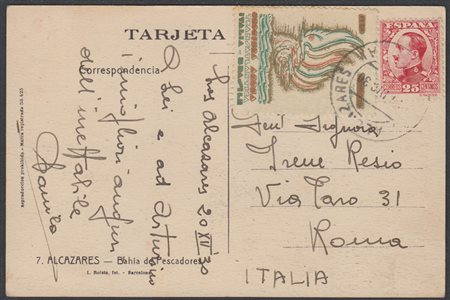 TARJETA
Correspondencia
Los Alcazares 20 XII 30
A Lei e ad Arturo
i migliori auguri
dell'ineffabile
ITALIA - BRASILE
ESPAÑA
25
ZARES
Irene Resio
Via Caro 31
Roma
ITALIA
7. ALCAZARES — Bahía de Pescadores
L. Roisin, fot. - Barcelona
Reproducción prohibida - Marca registrada